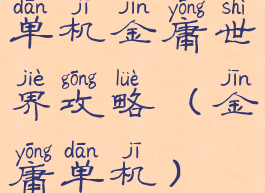 dān jī jīn yōng shì
单机金庸世
jiè gōng lüè jīn
界攻略（金
yōng dān jī
庸单机）